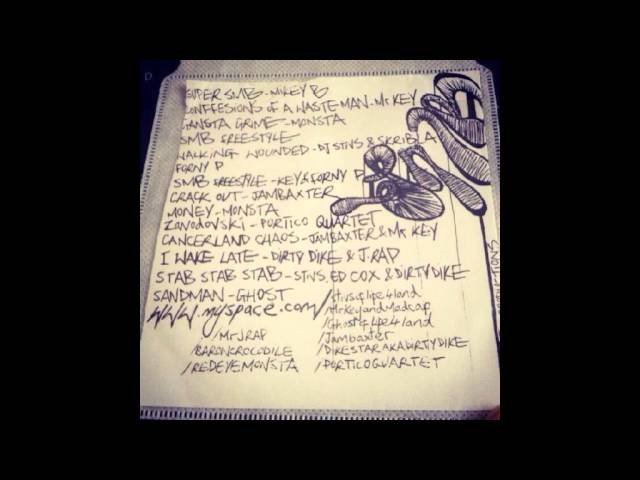 SUPER SMB - MIKEY B
CONFFESIONS OF A WASTEMAN - Mr KEY
GANSTA GRIME - MONSTA
SMB FREESTYLE
WALKING WOUNDED - DJ STIVS & SKRIBLA
FORNY P
SMB FREESTYLE - KEY & FORNY P
CRACK OUT - JAMBAXTER
MONEY - MONSTA
Zavodovski - PORTICO QUARTET
CANCERLAND CHAOS - JAMBAXTER & Mr KEY
I WAKE LATE - DIRTY DIKE & J.RAP
STAB STAB STAB - STIVS, ED COX & DIRTY DIKE
SANDMAN - GHOST
WWW.myspace.com/
/stivsoflife4land
/MrkeyandMadcap
/Ghostoflife4land
/MrJRAP
/Jambaxter
/BARONCROCODILE
/DIKESTARAKADIRTYDIKE
/REDEYEMONSTA
/PORTICOQUARTET